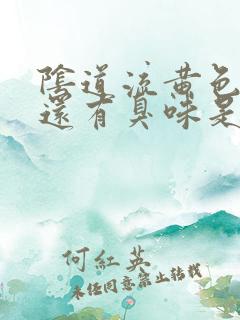 陰道流黃色
還有臭味是
何紅英
未经同意禁止转载